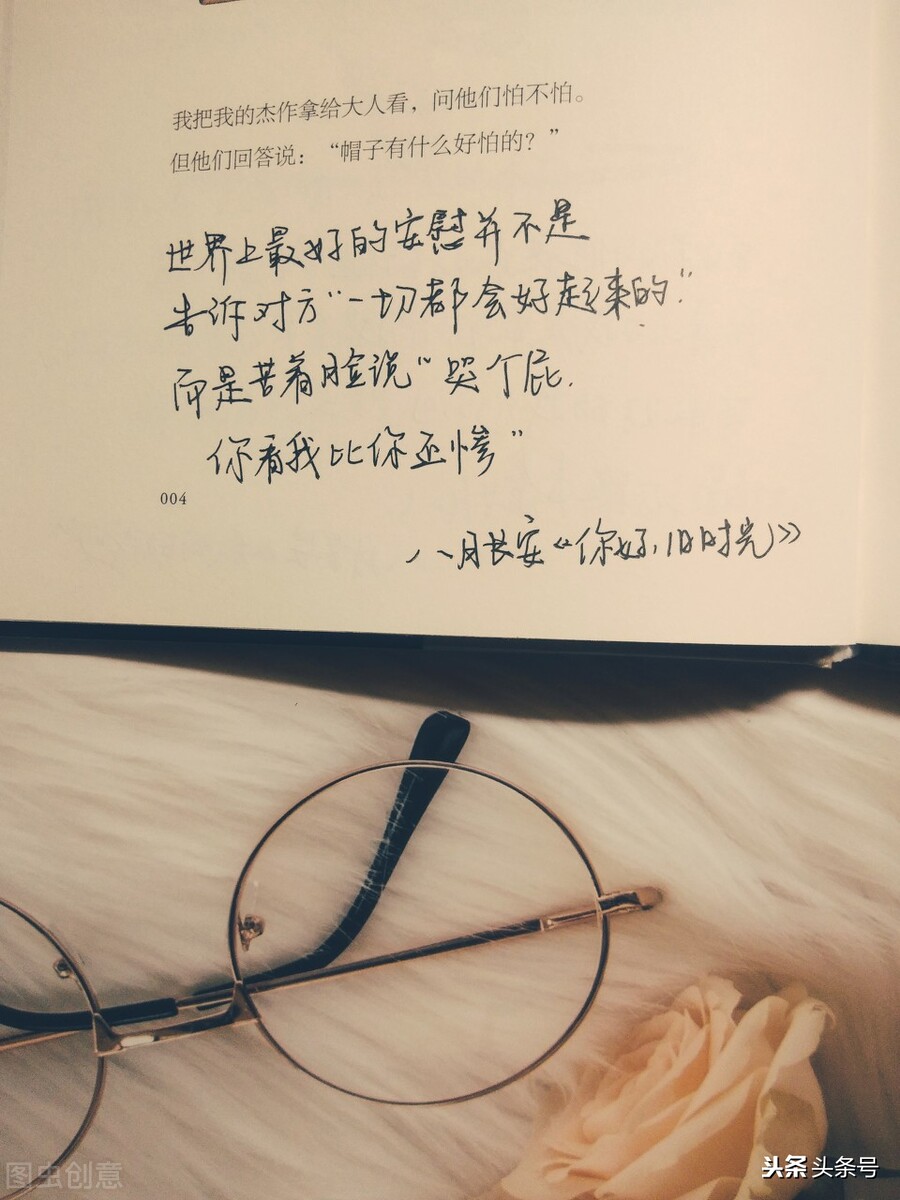 我把我的杰作拿给大人看，问他们怕不怕。
但他们回答说：“帽子有什么好怕的？”
世界上最好的安慰并不是
告诉对方“一切都会好起来的”.
而是苦着脸说“哭个屁.
你看我比你还惨”
004
八月长安《你好,旧时光》
图虫创意
头条 头条号